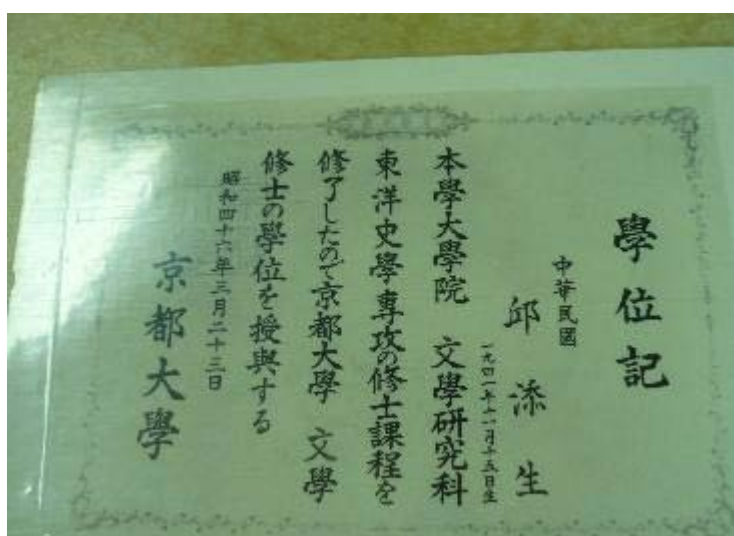 學位記
中華民國
邱添生
一九四一年十一月十五日生
本學大學院 文學研究科
東洋史學専攻の修士課程を
修了したので京都大學 文學
修士の學位を授與する
昭和四十六年三月二十三日
京都大學